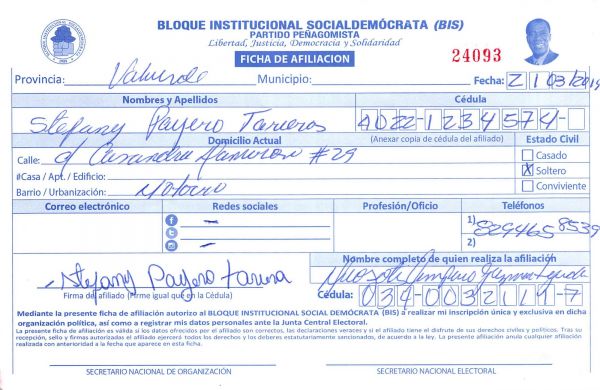 BLOQUE INSTITUCIONAL SOCIALDEMÓCRATA (BIS)
PARTIDO PEÑAGOMISTA
Libertad, Justicia, Democracia y Solidaridad
FICHA DE AFILIACION
24093
Provincia: Valverde Municipio: Fecha: 21/03/2019
Nombres y Apellidos Cédula
Stefany Payero Tarieros 4022-1234574-
Domicilio Actual (Anexar copia de cédula del afiliado) Estado Civil
Calle: #29 Casado
#Casa / Apt. / Edificio: X Soltero
Barrio / Urbanización: Conviviente
Correo electrónico Redes sociales Profesión/Oficio Teléfonos
f – 1) 829465 8539
2)
–
Nombre completo de quien realiza la afiliación
Stefany Payero
Firma del afiliado (Firme igual que en la Cédula) Cédula: 034-0032111-7
Mediante la presente ficha de afiliación autorizo al BLOQUE INSTITUCIONAL SOCIAL DEMÓCRATA (BIS) a realizar mi inscripción única y exclusiva en dicha
organización política, así como a registrar mis datos personales ante la Junta Central Electoral.
La presente ficha de afiliación es válida si los datos ofrecidos por el afiliado son correctos, las declaraciones veraces y si el afiliado tiene el disfrute de sus derechos civiles y políticos. Tras su
recepción, sello y firmas autorizadas el afiliado ejercerá todos los derechos y los deberes estatutariamente sancionados, de acuerdo a la ley. La presente afiliación anula cualquier afiliación
realizada con anterioridad a la fecha que aparece en esta ficha.
SECRETARIO NACIONAL DE ORGANIZACIÓN SECRETARIO NACIONAL ELECTORAL